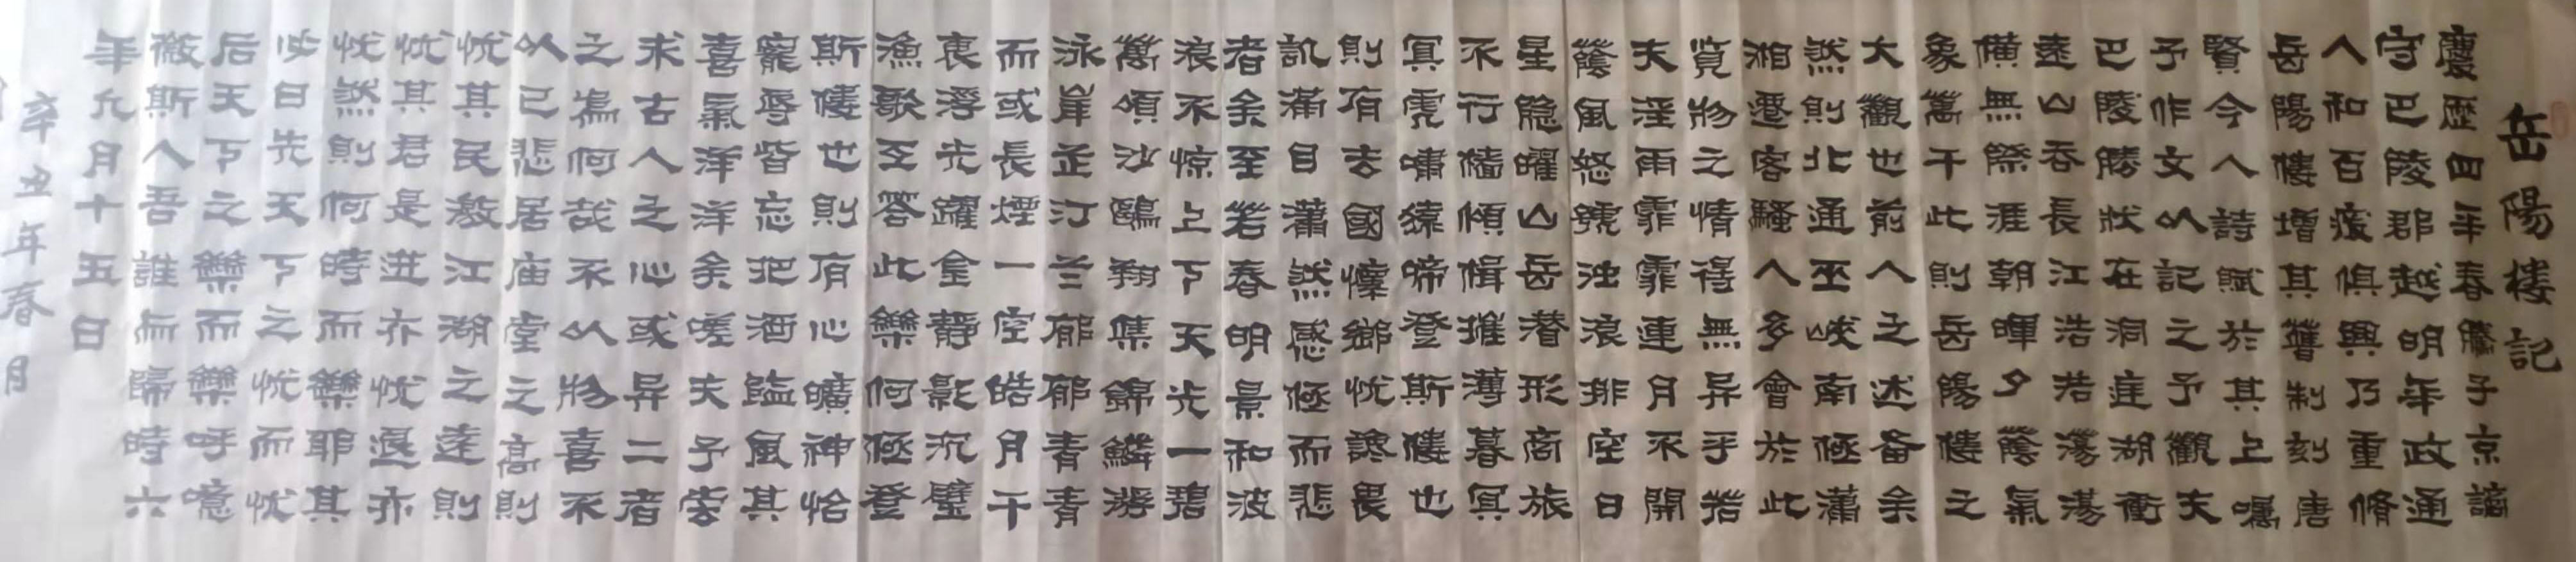 岳陽楼記
慶歷四年春滕子京謫
守巴陵郡越明年政通
人和百廢俱興乃重脩
岳陽樓增其舊制刻唐
賢今人詩賦於其上囑
予作文以記之予觀夫
巴陵勝狀在洞庭湖銜
遠山吞長江浩浩蕩蕩
橫無際涯朝暉夕陰氣
象萬千此則岳陽樓之
大觀也前人之述备余
然則北通巫峽南極瀟
湘遷客騷人多會於此
覽物之情得無异乎若
夫淫雨霏霏連月不開
陰風怒號浊浪排空日
星隐曜山岳潛形商旅
不行檣傾楫摧薄暮冥
冥虎嘯猿啼登斯樓也
則有去國懷鄉忧讒畏
譏滿目瀟然感極而悲
者余至若春明景和波
浪不惊上下天光一碧
萬頃沙鷗翔集錦鱗游
泳岸芷汀兰郁郁青青
而或長煙一空皓月千
衷浮光躍金靜影沉璧
漁歌互答此樂何極登
斯樓也則有心曠神怡
寵辱皆忘把酒臨風其
喜氣洋洋余嗟夫予嘗
求古人之心或异二者
之為何哉不以物喜不
以已悲居庙堂之高則
忧其民處江湖之遠則
忧其君是進亦忧退亦
忧然則何時而樂耶其
必曰先天下之忧而忧
后天下之樂而樂呼噫
微斯人吾誰與歸時六
年九月十五日
辛丑年春月